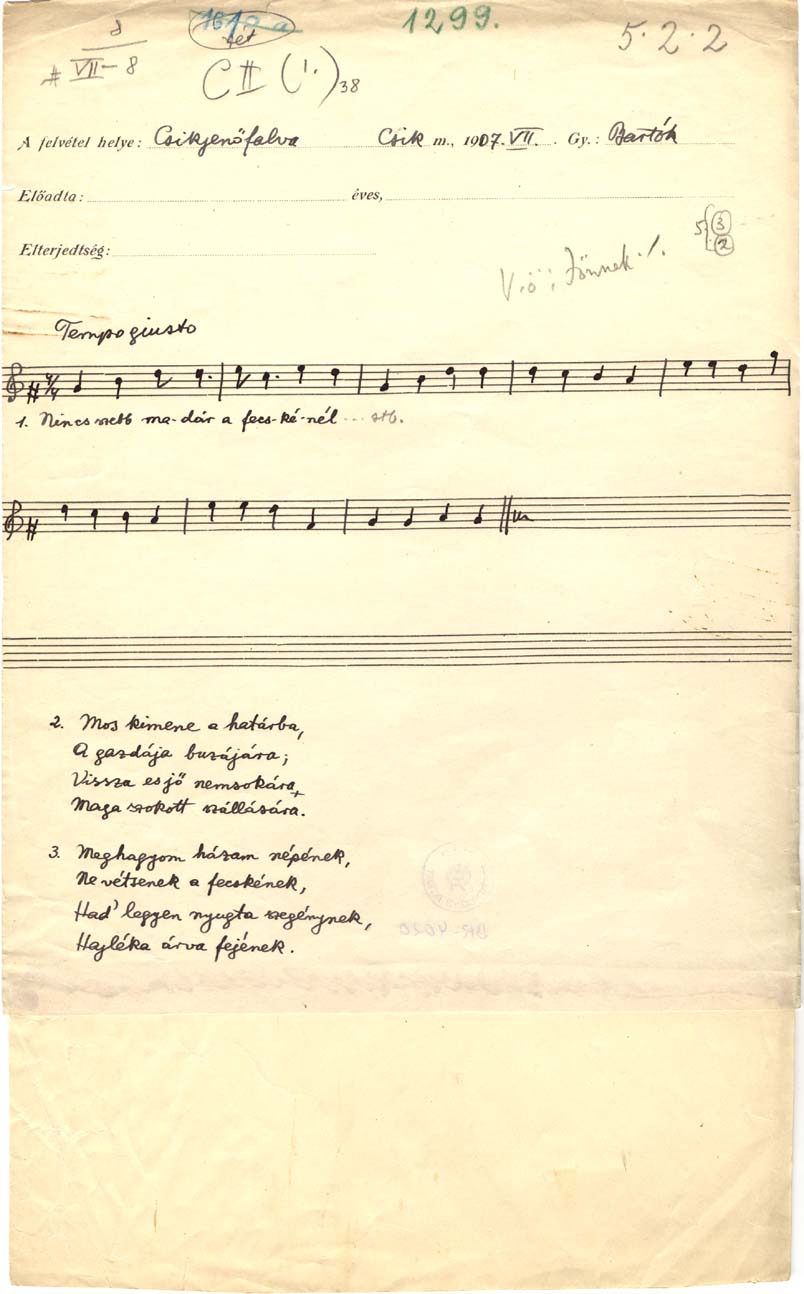 1299.
5.2.2
VII-8
C II (1.) 38
A felvétel helye: Csikjenőfalva Csik m., 1907. VII. Gy.: Bartók
Előadta: éves,
5 { 3
2
Elterjedtség:
V.ö.: Jönnek
Tempo giusto
7/4
1. Nincs szebb ma-dár a fecs-ké-nél ... stb.
2. Mos kimene a határba,
A gazdája buzájára;
Vissza es jő nemsokára,
Maga szokott szállására.
3. Meghagyom házam népének,
Ne vétsenek a fecskének,
Had' legyen nyugta szegénynek,
Hajléka árva fejének.
BR-4020